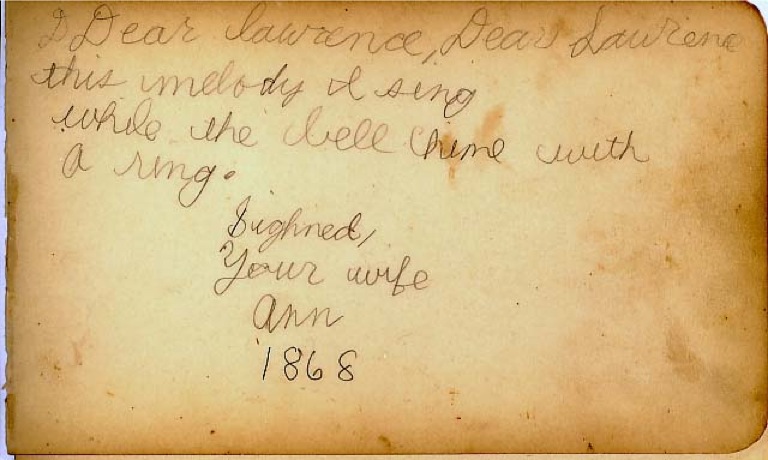 D Dear lawrence, Dear Lawrenc
this melody I sing
while the bell chime with
a ring.
Sighned,
Your wife
Ann
1868